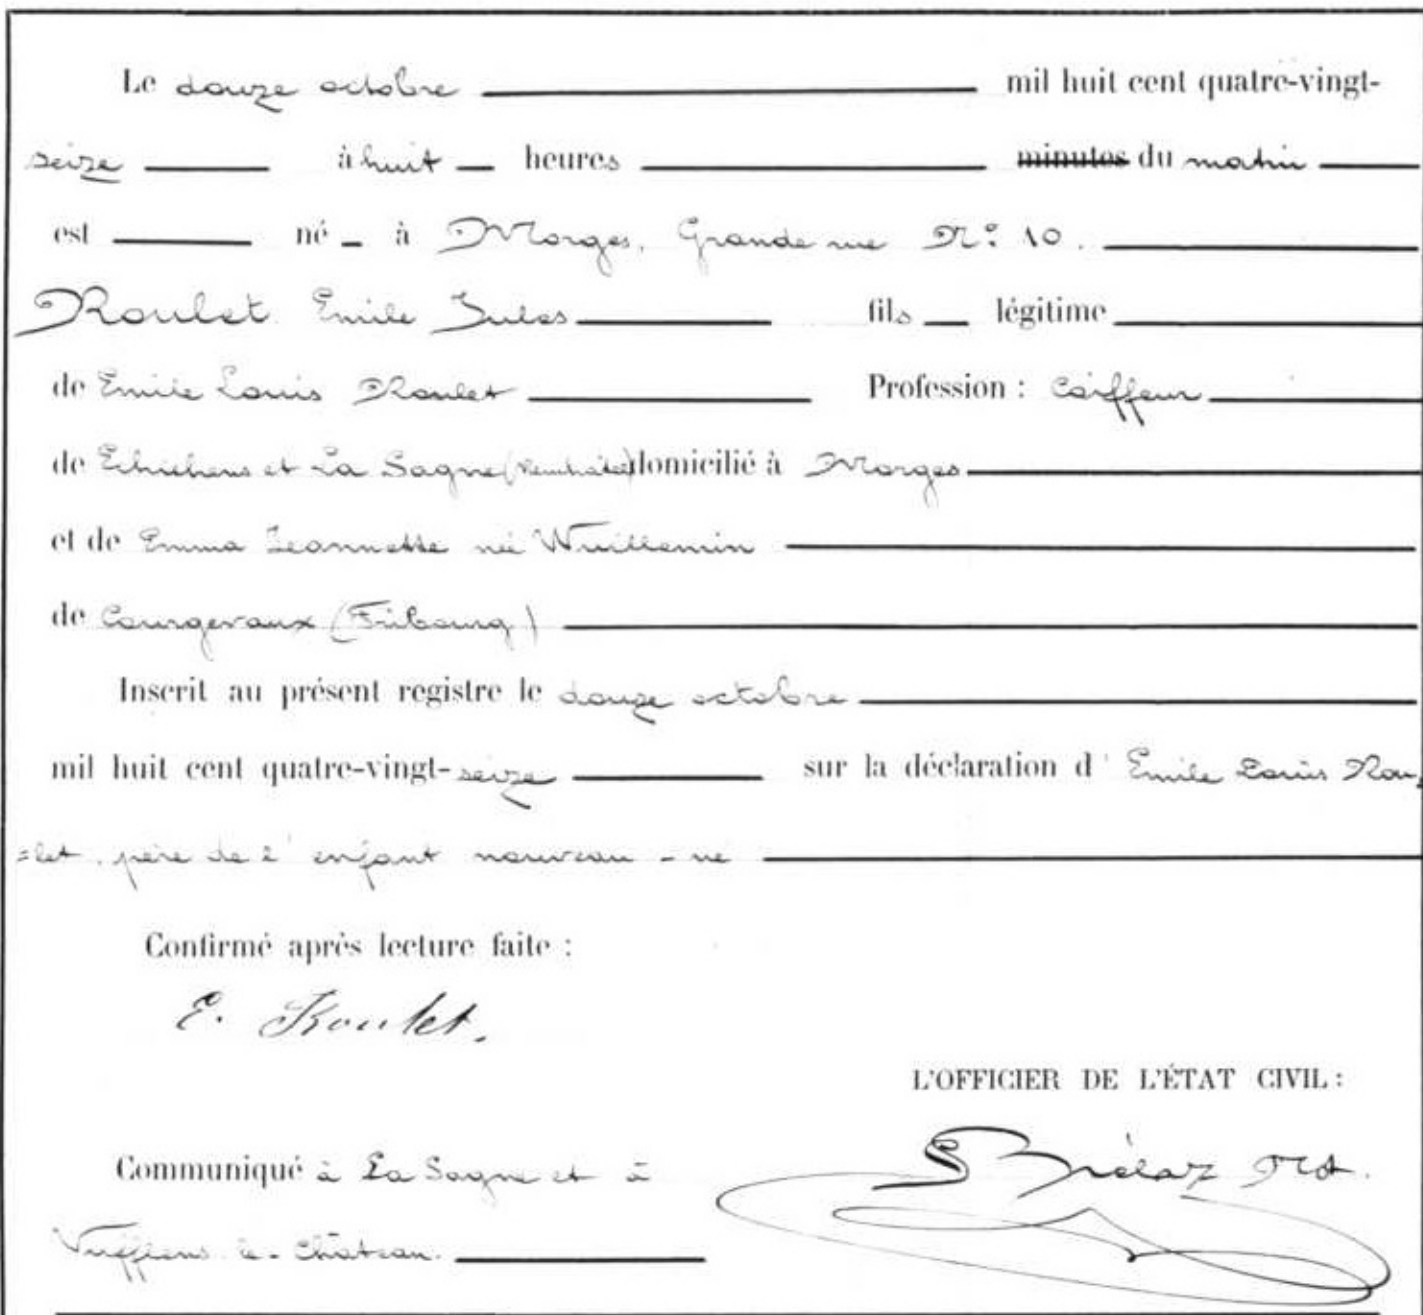 Le douze octobre mil huit cent quatre-vingt-
seize à huit heures minutes du matin
est né à Morges, Grande rue N° 10.
Roulet Emile Jules fils légitime
de Emile Louis Roulet Profession : Coiffeur
de Echichens et La Sagne (Neuchâtel) domicilié à Morges
et de Emma Jeannette née Wuillemin
de Courgevaux (Fribourg)
Inscrit au présent registre le douze octobre
mil huit cent quatre-vingt-seize sur la déclaration d'Emile Louis Rou=
=let, père de l'enfant nouveau-né
Confirmé après lecture faite :
E. Roulet.
L'OFFICIER DE L'ÉTAT CIVIL :
Communiqué à La Sagne et à
Vufflens-le-Château.